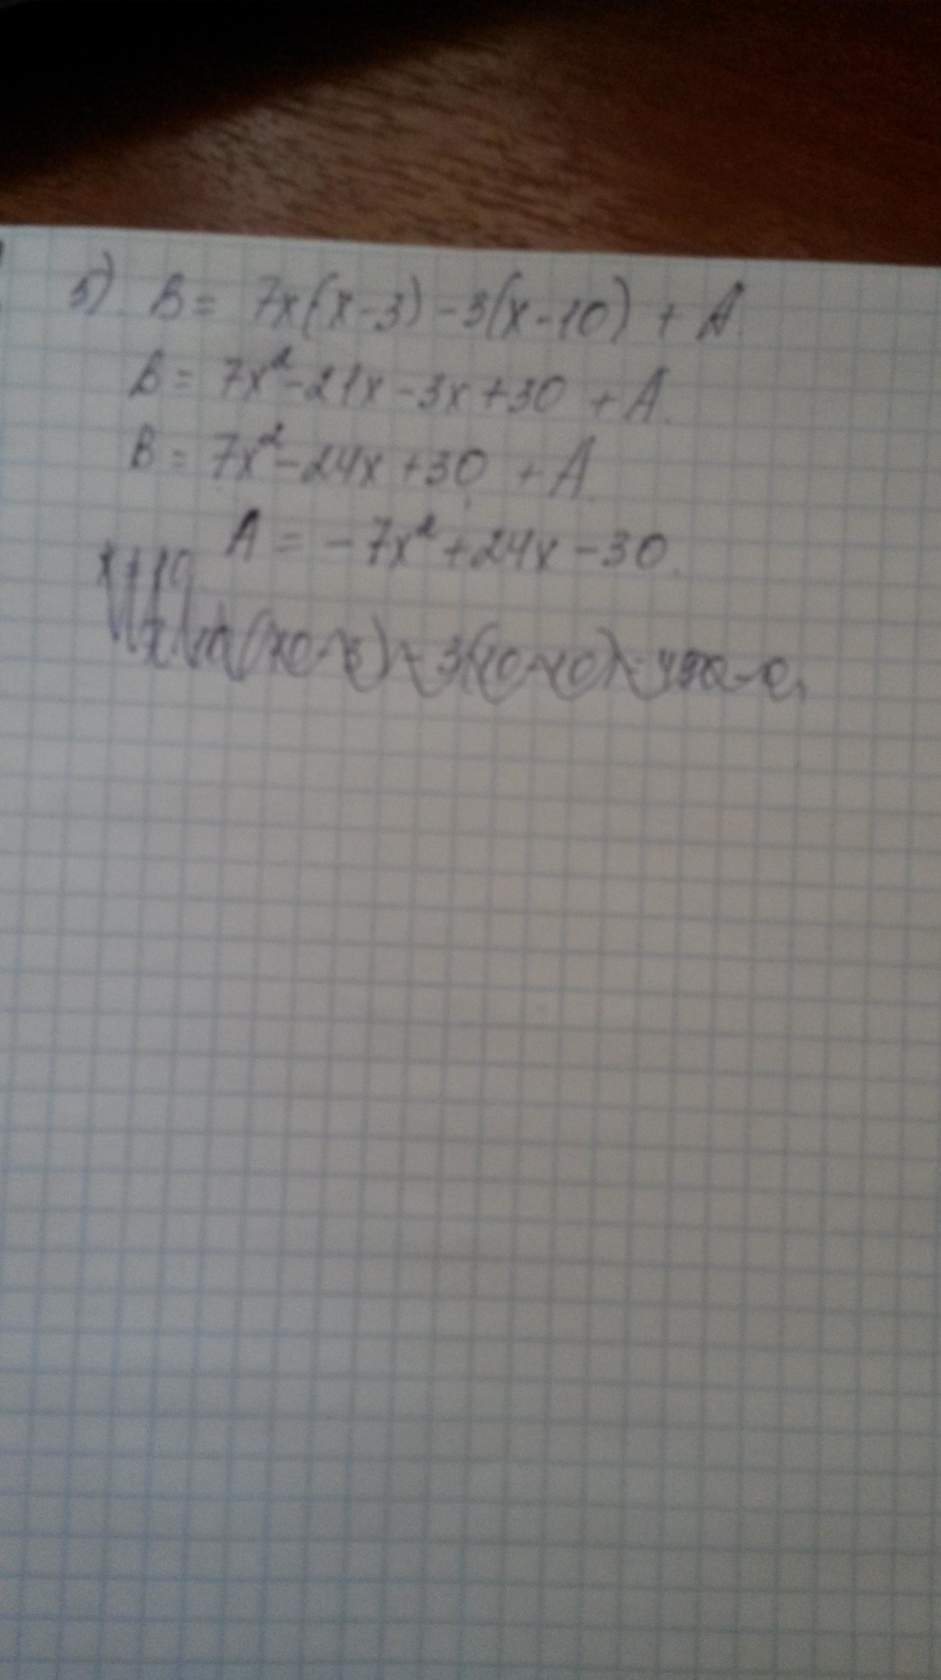 б) В = 7x(x-3) - 3(x-10) + А
В = 7x² - 21x - 3x + 30 + А.
В = 7x² - 24x + 30 + А.
А = -7x² + 24x - 30.